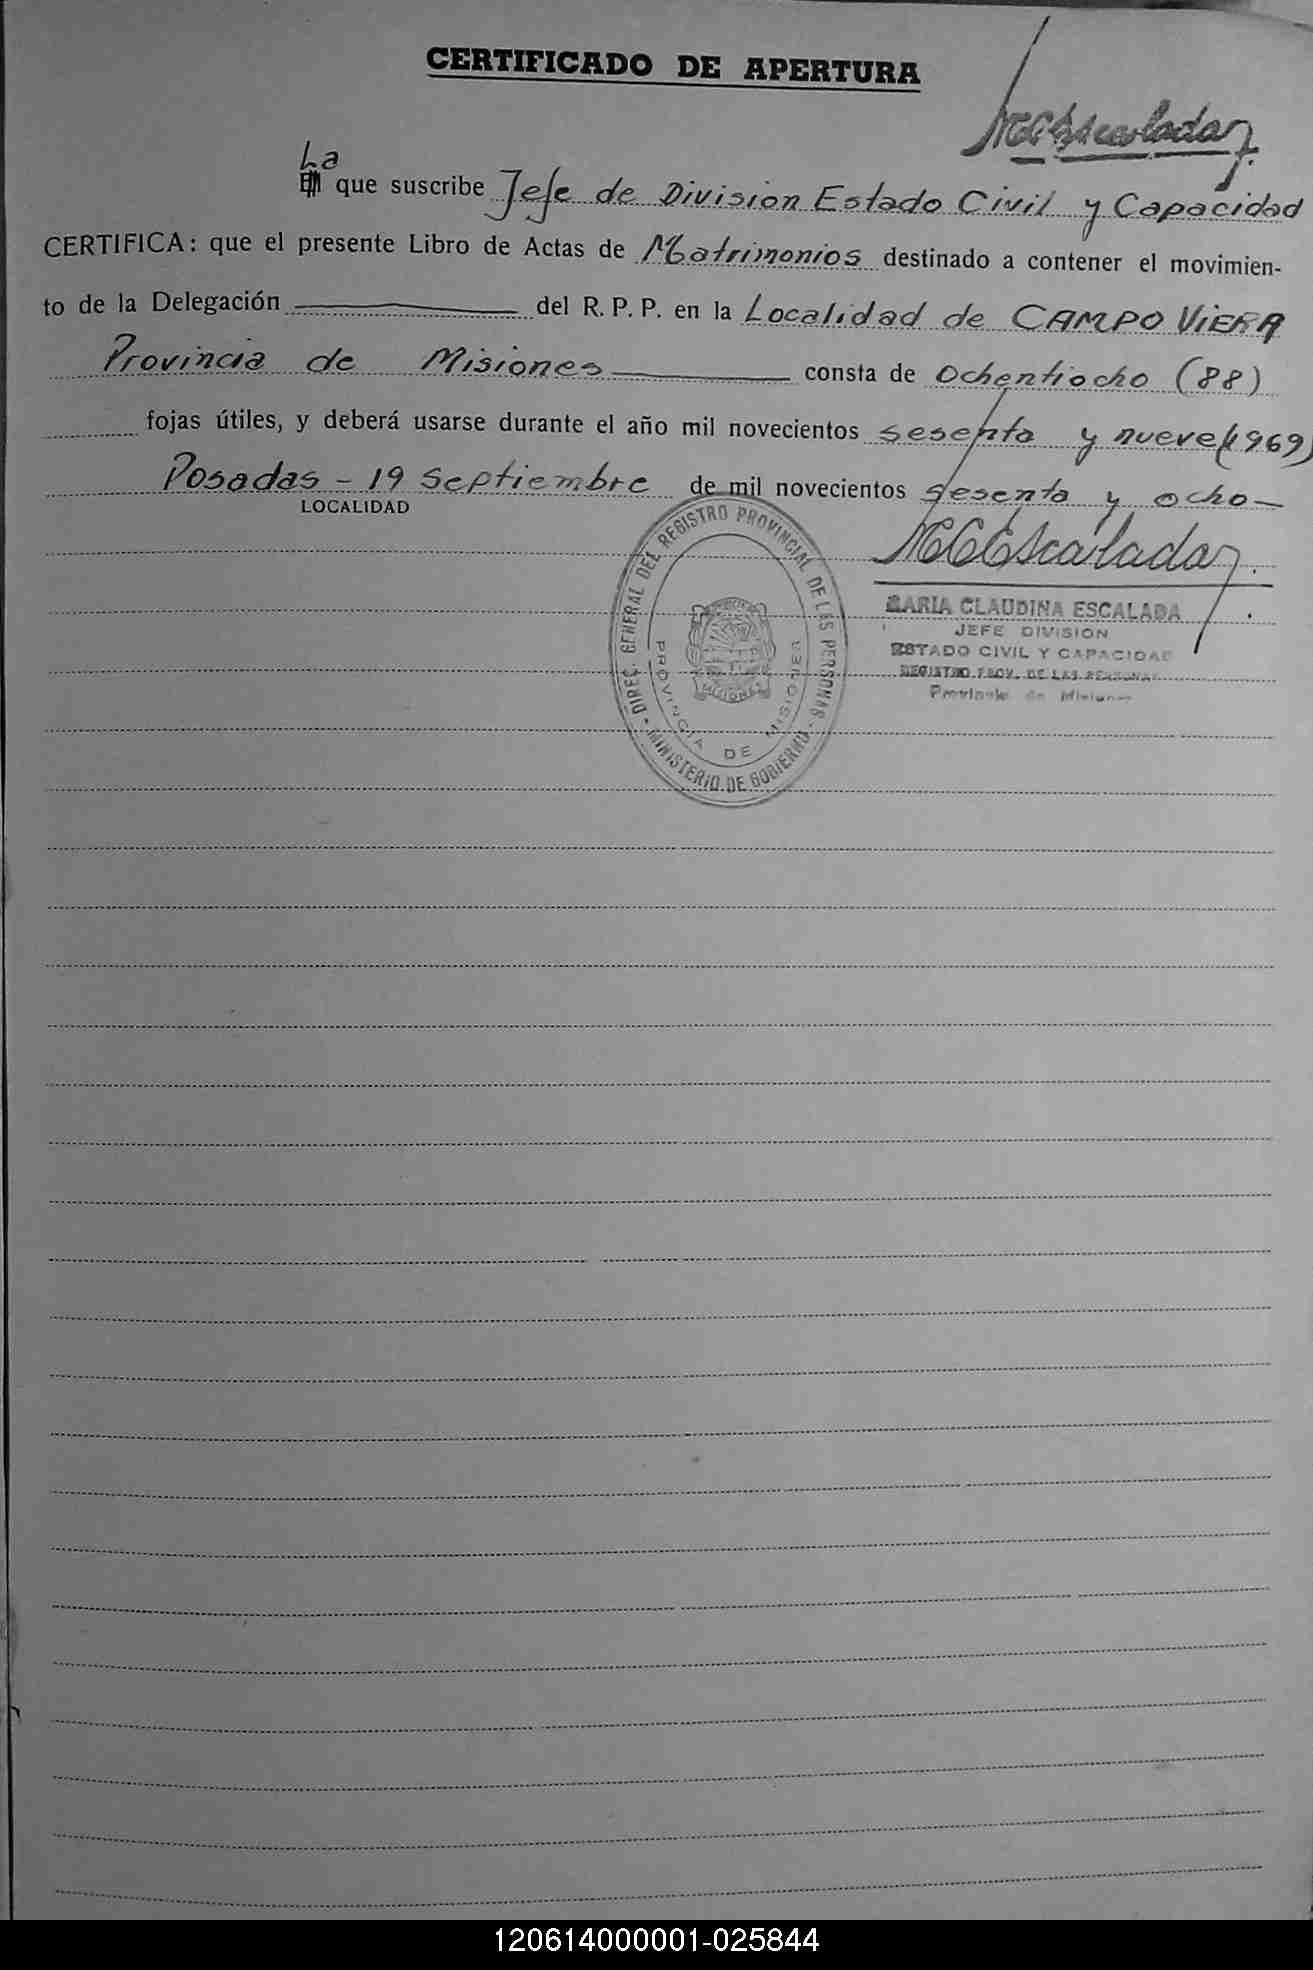 CERTIFICADO DE APERTURA
MCEscalada
La
que suscribe Jefe de Division Estado Civil y Capacidad
CERTIFICA: que el presente Libro de Actas de Matrimonios destinado a contener el movimien-
to de la Delegación del R. P. P. en la Localidad de CAMPO VIERA
Provincia de Misiones consta de Ochentiocho (88)
fojas útiles, y deberá usarse durante el año mil novecientos sesenta y nueve (1969)
Posadas - 19 Septiembre de mil novecientos sesenta y ocho
LOCALIDAD
MCEscalada
MARIA CLAUDINA ESCALADA
JEFE DIVISION
ESTADO CIVIL Y CAPACIDAD
REGISTRO PROV. DE LAS PERSONAS
Provincia de Misiones
DIREC. GENERAL DEL REGISTRO PROVINCIAL DE LAS PERSONAS
- MINISTERIO DE GOBIERNO -
PROVINCIA DE MISIONES
MISIONES
120614000001-025844